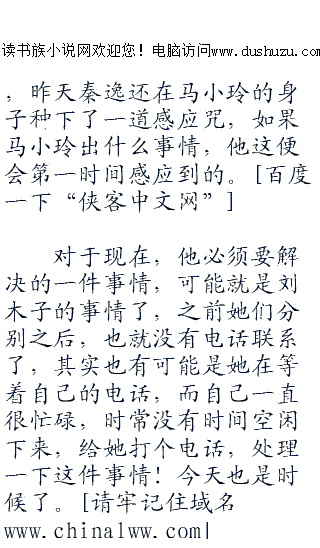 读书族小说网欢迎您！电脑访问www.dushuzu.com
，昨天秦逸还在马小玲的身
子种下了一道感应咒，如果
马小玲出什么事情，他这便
会第一时间感应到的。[百度
一下“侠客中文网”]
对于现在，他必须要解
决的一件事情，可能就是刘
木子的事情了，之前她们分
别之后，也就没有电话联系
了，其实也有可能是她在等
着自己的电话，而自己一直
很忙碌，时常没有时间空闲
下来，给她打个电话，处理
一下这件事情！今天也是时
候了。[请牢记住域名
www.chinalww.com|